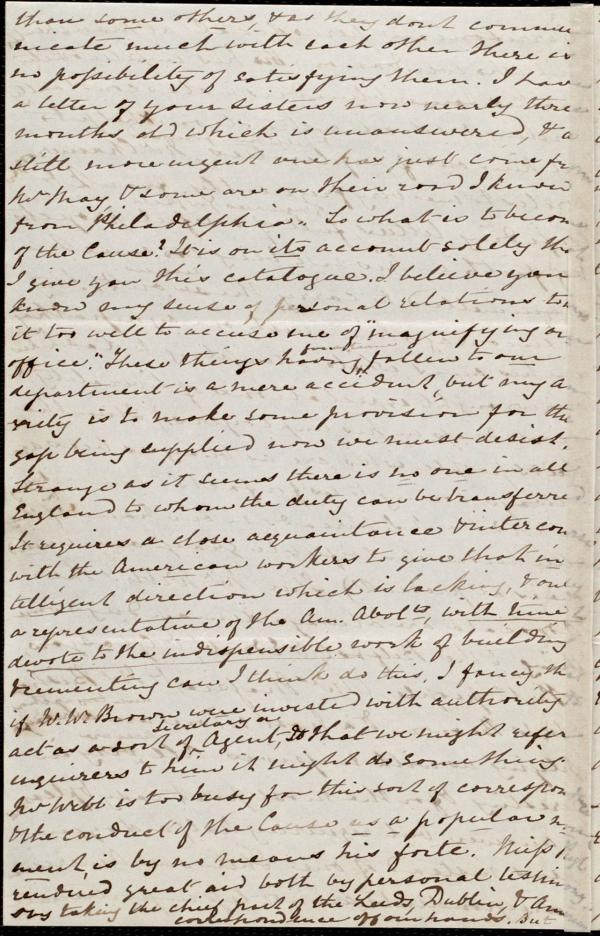 than some others, & as they dont commu
nicate much with each other there is
no possibility of satisfying them. I have
a letter of your sisters now nearly three
months old which is unanswered, & a
still more urgent one has just come fr
Mr May, & some are on their road I know
from Philadelphia. So what is to becom
of the Cause? It is on its account solely th
I give you this catalogue. I believe you
know my sense of personal relations to
it too well to accuse me of "magnifying our
office." These things having fallen to our
department is a mere accident, but my a
xiety is to make some provision for the
gap being supplied now we must desist.
Strange as it seems there is no one in all
England to whom the duty can be transferred
It requires a close acquaintance & intercou
with the American workers to give that in
telligent direction which is lacking, & only
a representative of the Am. Abolts, with time
devote to the indispensible work of building
& cementing can I think do this. I fancy th
if W. W. Brown were invested with authority
act as a sort of Secretary or Agent, so that we might refer
inquirers to him it might do something.
Mr Webb is too busy for this sort of correspon
& the conduct of the Cause as a popular m
ment, is by no means his forte. Miss P.
rendered great aid both by personal testim
ous taking the chief part of the Leeds, Dublin, & Am
correspondence off our hands. But